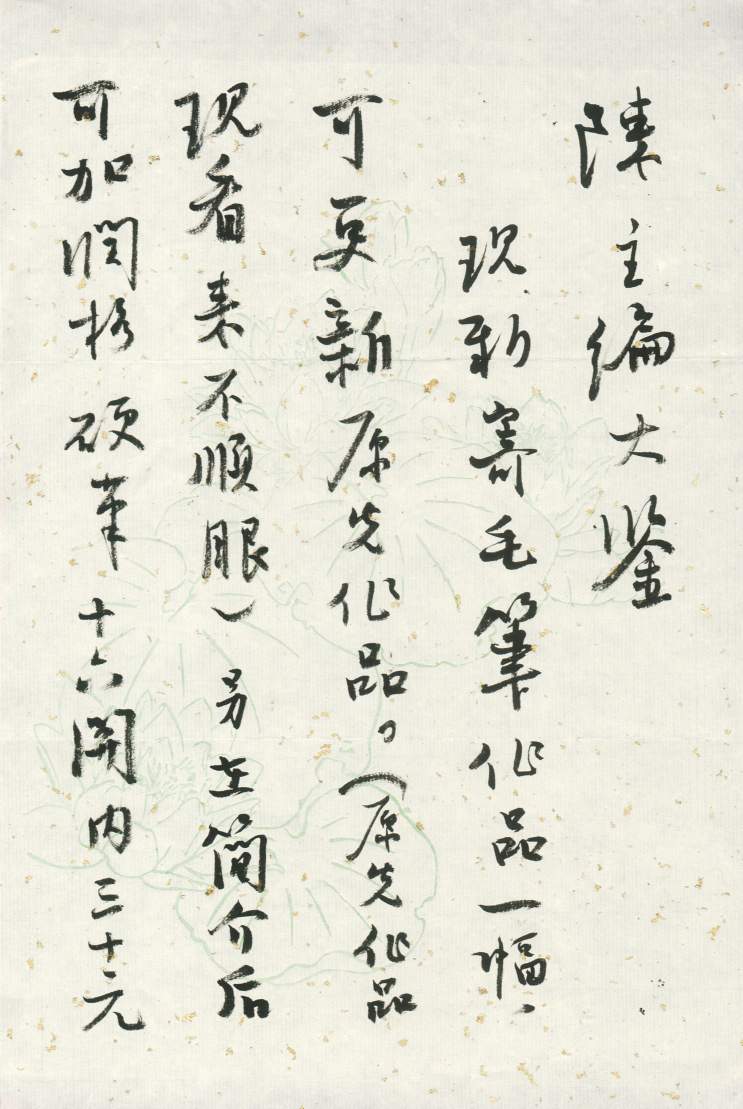 陳主編大鑒
现新寄毛筆作品一幅、
可更新原先作品。（原先作品
现看来不順眼）另在簡介后
可加潤格硬筆十六開内三十元